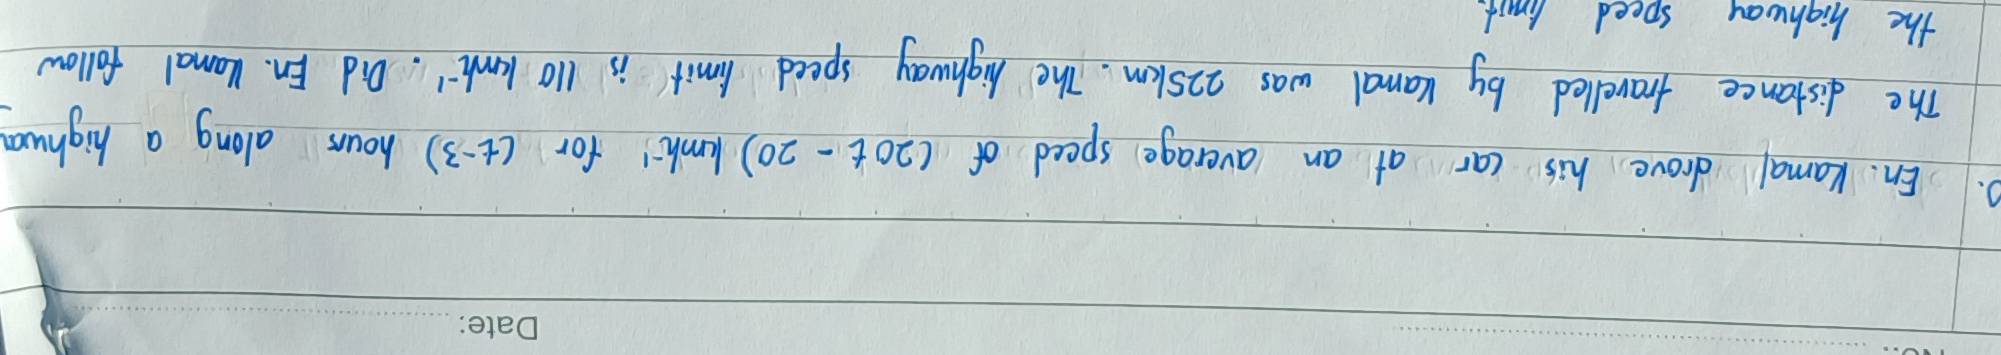 Date:
En. Kamal drove his car at an average speed of (20t - 20) kmh⁻¹ for (t-3) hours along a
The distance travelled by Kamal was 225km. The highway speed limit is 110 kmh⁻¹. Did En. Kamal follow
the highway speed limit.